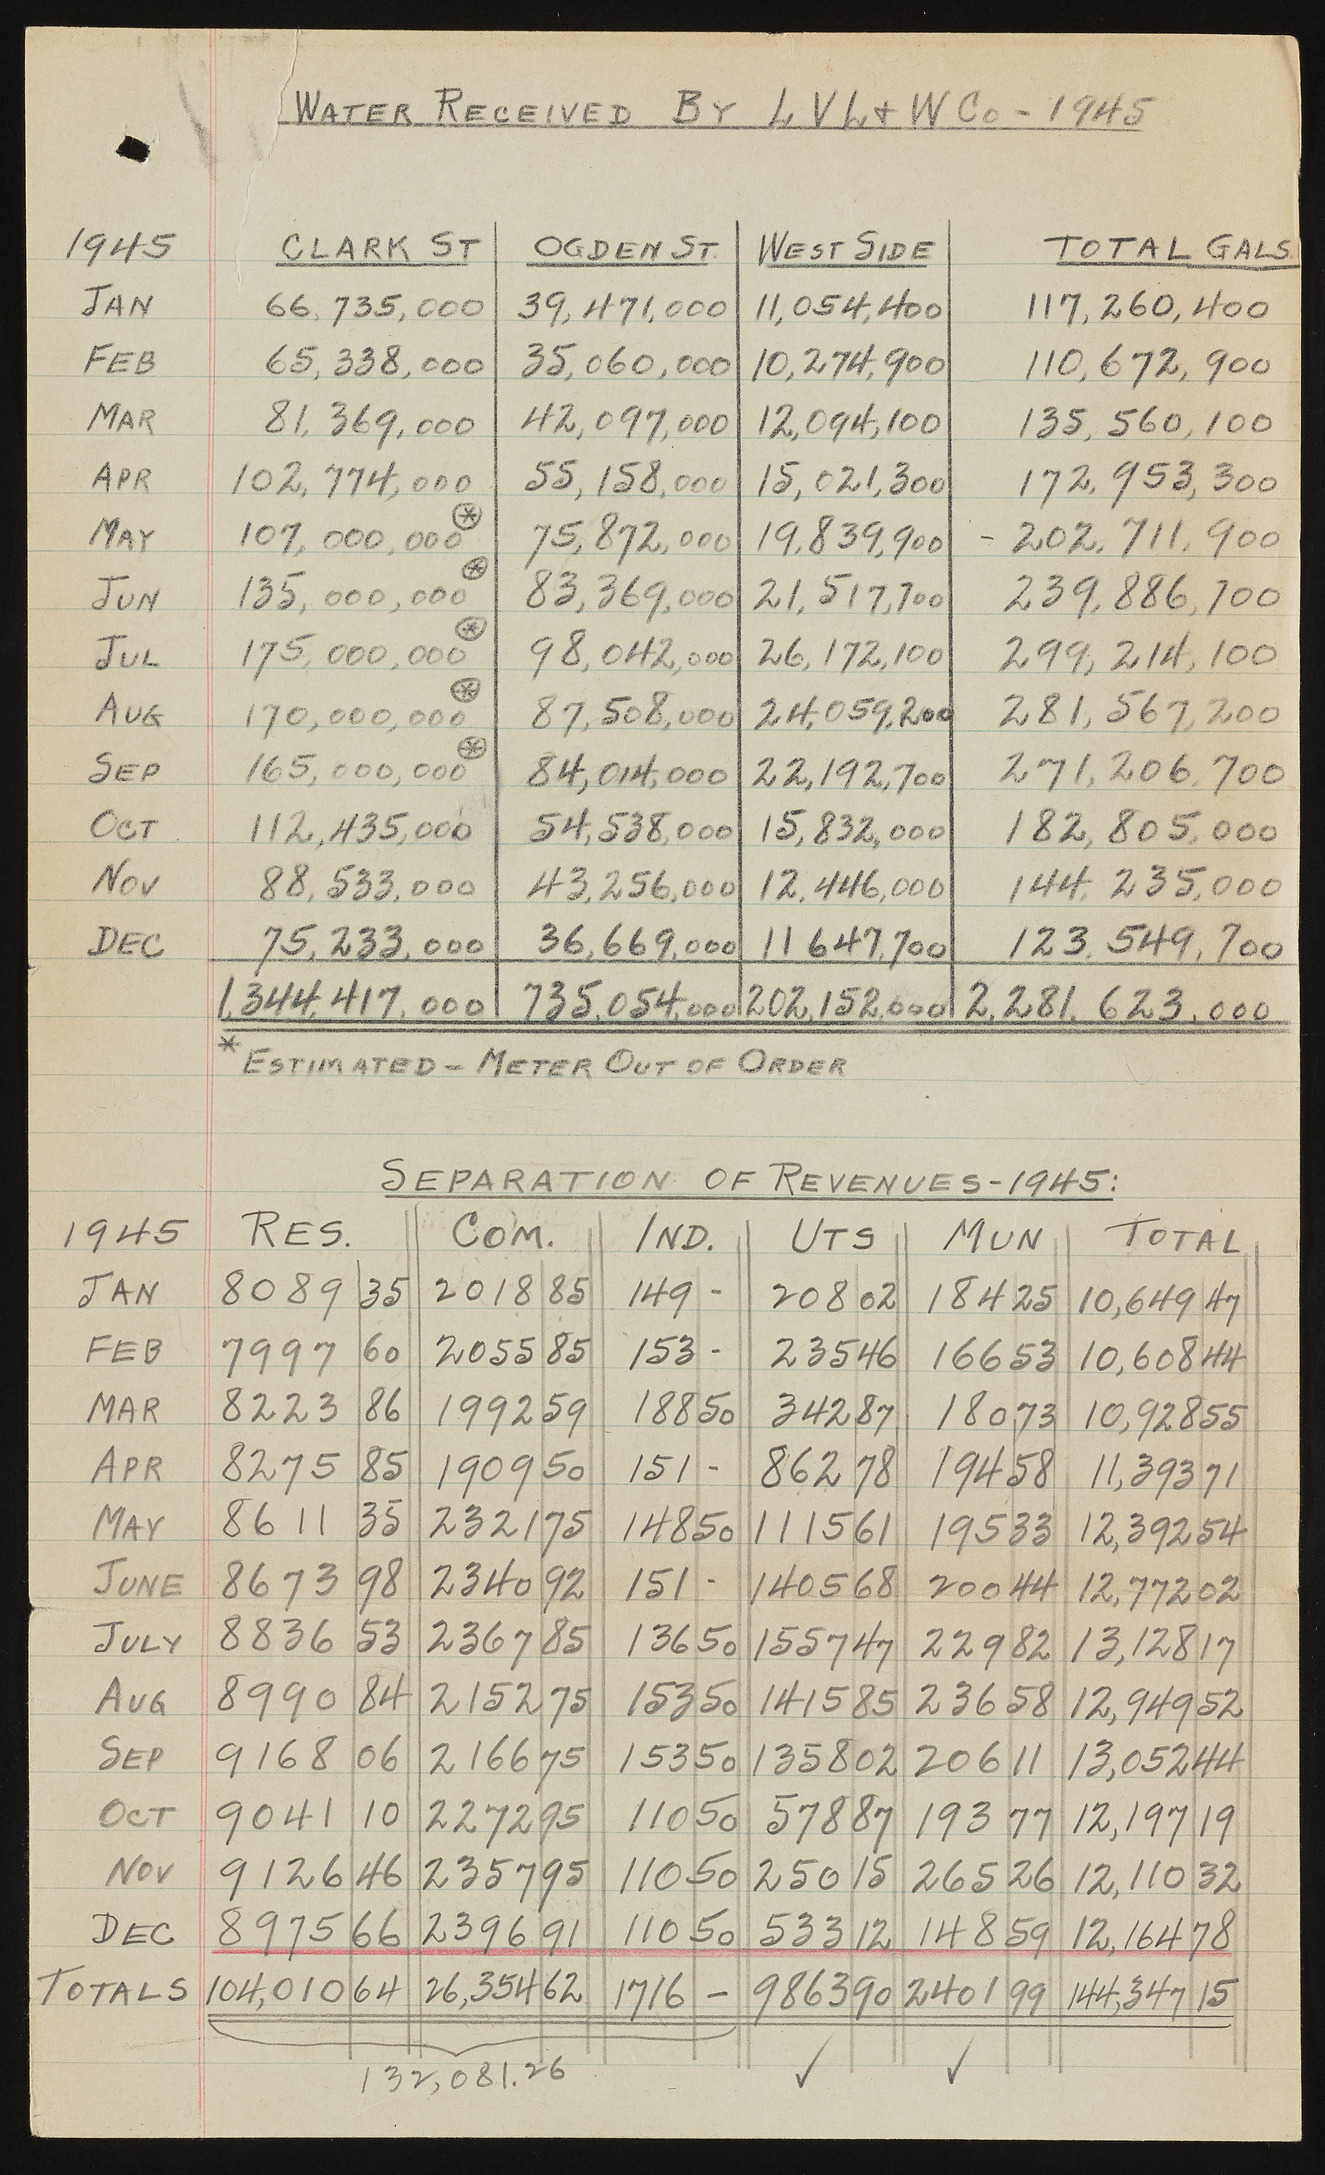 WATER RECEIVED BY L V L + W Co - 1945
1945 CLARK ST OGDEN ST. WEST SIDE TOTAL GALS.
JAN 66,735,000 39,471,000 11,054,400 117,260,400
FEB 65,338,000 35,060,000 10,274,900 110,672,900
MAR 81,369,000 42,097,000 12,094,100 135,560,100
APR 102,774,000 55,158,000 15,021,300 172,953,300
MAY 107,000,000 * 75,872,000 19,839,900 - 202,711,900
JUN 135,000,000 * 83,369,000 21,517,700 239,886,700
JUL 175,000,000 * 98,042,000 26,172,100 299,214,100
AUG 170,000,000 * 87,508,000 24,059,200 281,567,200
SEP 165,000,000 * 84,014,000 22,192,700 271,206,700
OCT 112,435,000 54,538,000 15,832,000 182,805,000
NOV 88,533,000 43,256,000 12,446,000 144,235,000
DEC 75,233,000 36,669,000 11 647,700 123,549,700
1,344,417,000 735,054,000 202,152,000 2,281,623,000
* ESTIMATED - METER OUT OF ORDER
SEPARATION OF REVENUES - 1945:
1945 RES. COM. IND. UTS MUN TOTAL
JAN 8089 35 2018 85 149 - 208 02 184 25 10,649 47
FEB 7997 60 2055 85 153 - 235 46 166 53 10,608 44
MAR 8223 86 1992 59 188 50 342 87 180 73 10,928 55
APR 8275 85 1909 50 151 - 862 78 194 58 11,393 71
MAY 8611 35 2321 75 148 50 1115 61 195 33 12,392 54
JUNE 8673 98 2340 92 151 - 1405 68 200 44 12,772 02
JULY 8836 53 2367 85 136 50 1557 47 229 82 13,128 17
AUG 8990 84 2152 75 153 50 1415 85 236 58 12,949 52
SEP 9168 06 2166 75 153 50 1358 02 206 11 13,052 44
OCT 9041 10 2272 95 110 50 578 87 193 77 12,197 19
NOV 9126 46 2357 95 110 50 250 15 265 26 12,110 32
DEC 8975 66 2396 91 110 50 533 12 148 59 12,164 78
TOTALS 104,010 64 26,354 62 1716 - 9863 90 2401 99 144,347 15
132,081.26 ✓ ✓